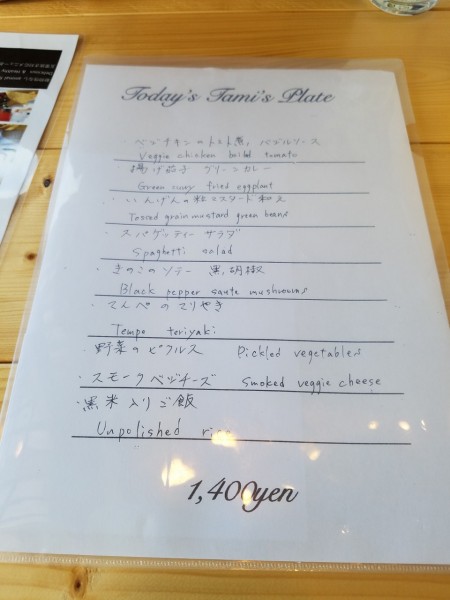 Today's Tami's Plate
・ベジチキンのトマト煮，バジルソース
Veggie chicken boild tomato
・揚げ茄子 グリーンカレー
Green curry fried eggplant
・いんげんの粒マスタード和え
Tossed grain mustard green beans
・スパゲッティー サラダ
Spaghetti salad
・きのこのソテー 黒胡椒
Black pepper saute mushrooms
・てんぺのてりやき
Tempe teriyaki
・野菜のピクルス Pickled vegetables
・スモークベジチーズ Smoked veggie cheese
・黒米入りご飯
Unpolished
1,400yen